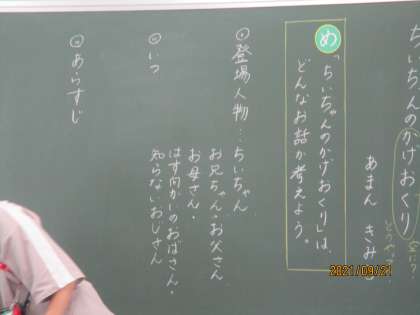 ちいちゃんのかげおくり
あまん きみこ
め
「ちいちゃんのかげおくり」は
どんなお話か考えよう。
登場人物…ちいちゃん
お兄ちゃん・お父さん
お母さん・
はす向かいのおばさん・
知らないおじさん
いつ
あらすじ
2021/09/21